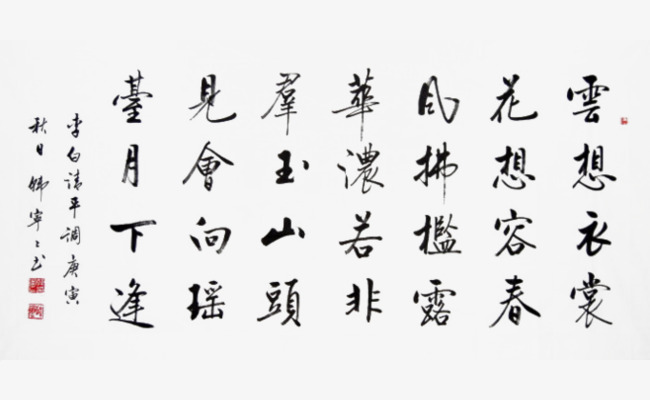 雲想衣裳
花想容春
風拂檻露
華濃若非
羣玉山頭
見會向瑶
臺月下逢
李白清平调庚寅
秋日韩寧寧书